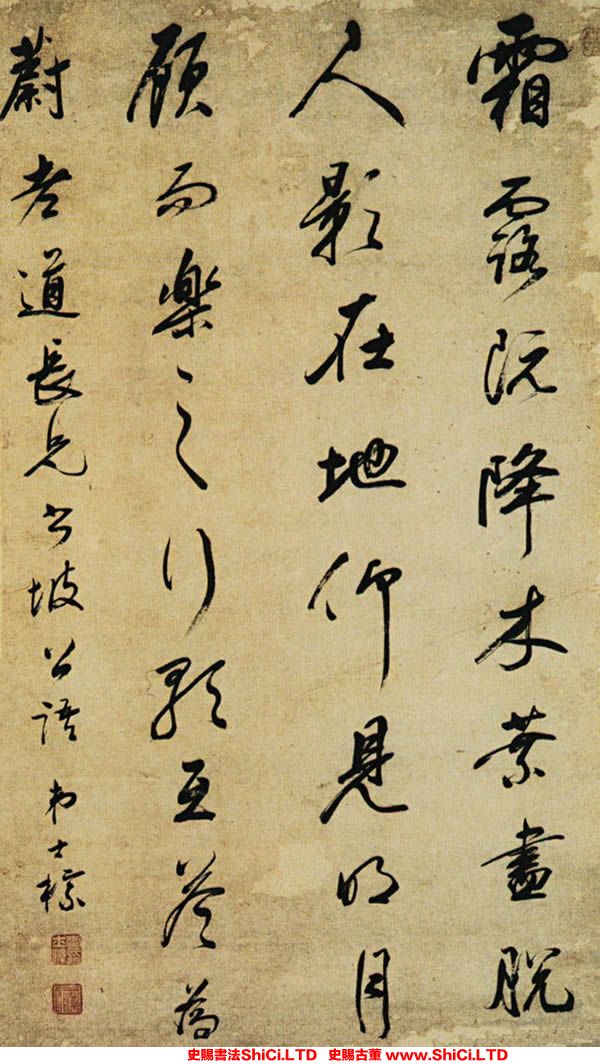 霜露既降木葉盡脫
人影在地仰見明月
顧而樂之行歌互答為
蔚老道長兄書坡公語 弟士標
史賜書法ShiCi.LTD 史賜古董 www.ShiCi.LTD